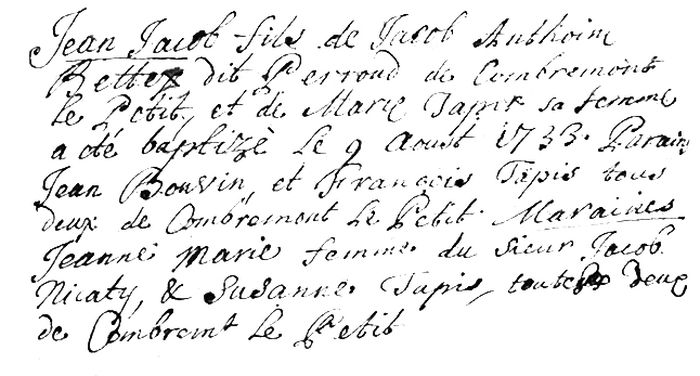 Jean Jacob fils de Jacob Anthoine
Bettex dit Perroud de Combremont
le Petit, et de Marie Tapis sa femme
a été baptizé le 9 Aoust 1733. Parains
Jean Bouvin, et François Tapis tous
deux de Combremont le Petit. Maraines
Jeanne Marie femme du Sieur Jacob
Nicaty, & Susanne Tapis, toutes deux
de Combremt le Petit